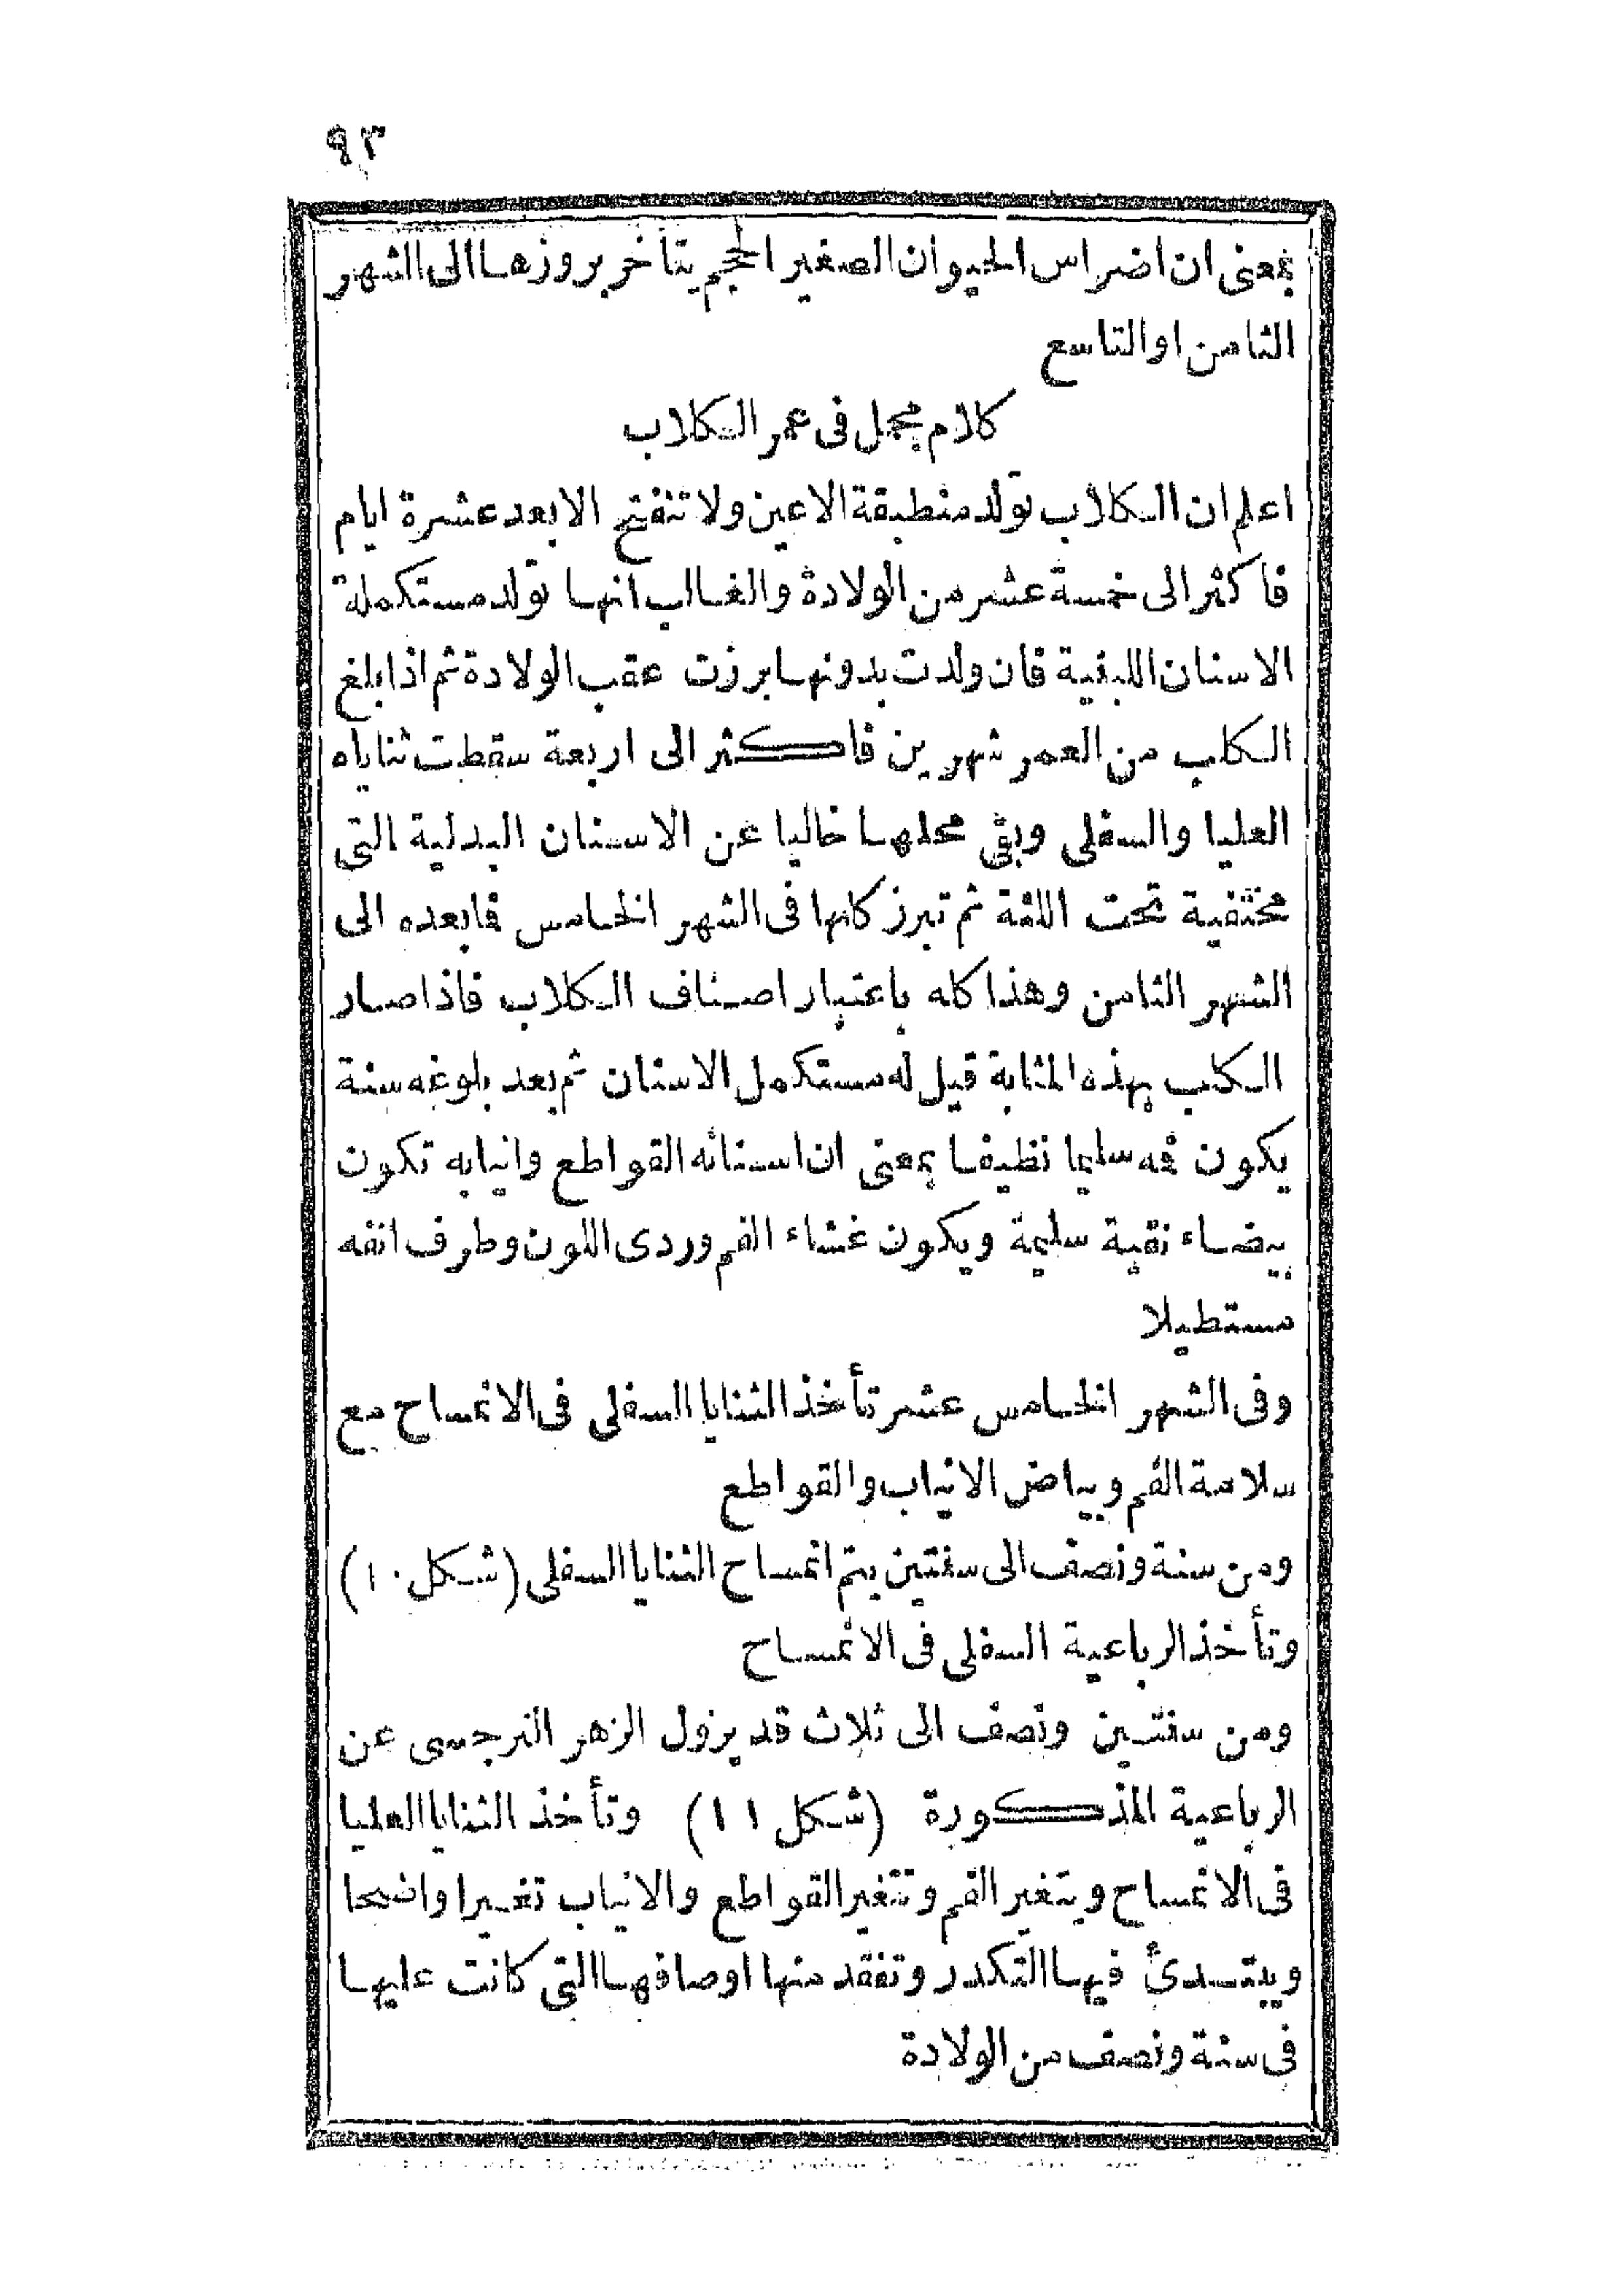 ٩٣
بمعنى ان اضراس الحيوان الصغير الحجم يتأخر بروزها الى الشهر
الثامن او التاسع
كلام مجمل فى عمر الكلاب
اعلم ان الكلاب تولد منطبقة الاعين ولا تنفتح الا بعد عشرة ايام
فاكثر الى خمسة عشر من الولادة والغالب انها تولد مستكملة
الاسنان اللبنية فان ولدت بدونها برزت عقب الولادة ثم اذا بلغ
الكلب من العمر شهرين فاكثر الى اربعة سقطت ثناياه
العليا والسفلى وبقى محلها خاليا عن الاسنان البدلية التى
مختفية تحت اللثة ثم تبرز كلها فى الشهر الخامس فابعده الى
الشهر الثامن وهذا كله باعتبار اصناف الكلاب فاذا صار
الكلب بهذه المثابة قيل له مستكمل الاسنان ثم بعد بلوغه سنة
يكون فمه سليما نظيفا بمعنى ان اسنانه القواطع وانيابه تكون
بيضاء نقية سليمة ويكون غشاء الفم وردى اللون وطرف انفه
مستطيلا
وفى الشهر الخامس عشر تأخذ الثنايا السفلى فى الانمساح مع
سلامة الفم وبياض الانياب والقواطع
ومن سنة ونصف الى سنتين يتم انمساح الثنايا السفلى (شكل ١٠)
وتأخذ الرباعية السفلى فى الانمساح
ومن سنتين ونصف الى ثلاث قد يزول الزهر النرجسى عن
الرباعية المذكورة (شكل ١١) وتأخذ الثنايا العليا
فى الانمساح ويتغير الفم وتتغير القواطع والانياب تغيرا واضحا
ويبتدئ فيها التكدر وتفقد منها اوصافها التى كانت عليها
فى سنة ونصف من الولادة